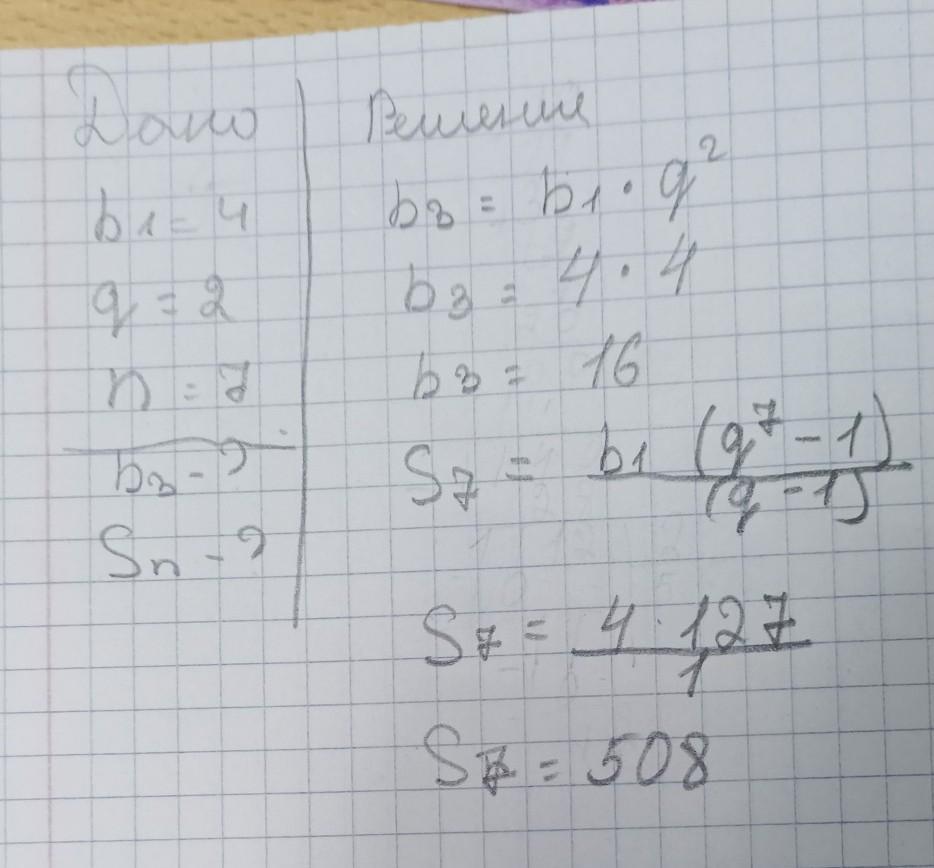 Дано
b1 = 4
q = 2
n = 7
b3 - ?
Sn - ?
Решение
b3 = b1 · q²
b3 = 4 · 4
b3 = 16
S7 = b1 (q⁷ - 1)
(q - 1)
S7 = 4 · 127
1
S7 = 508